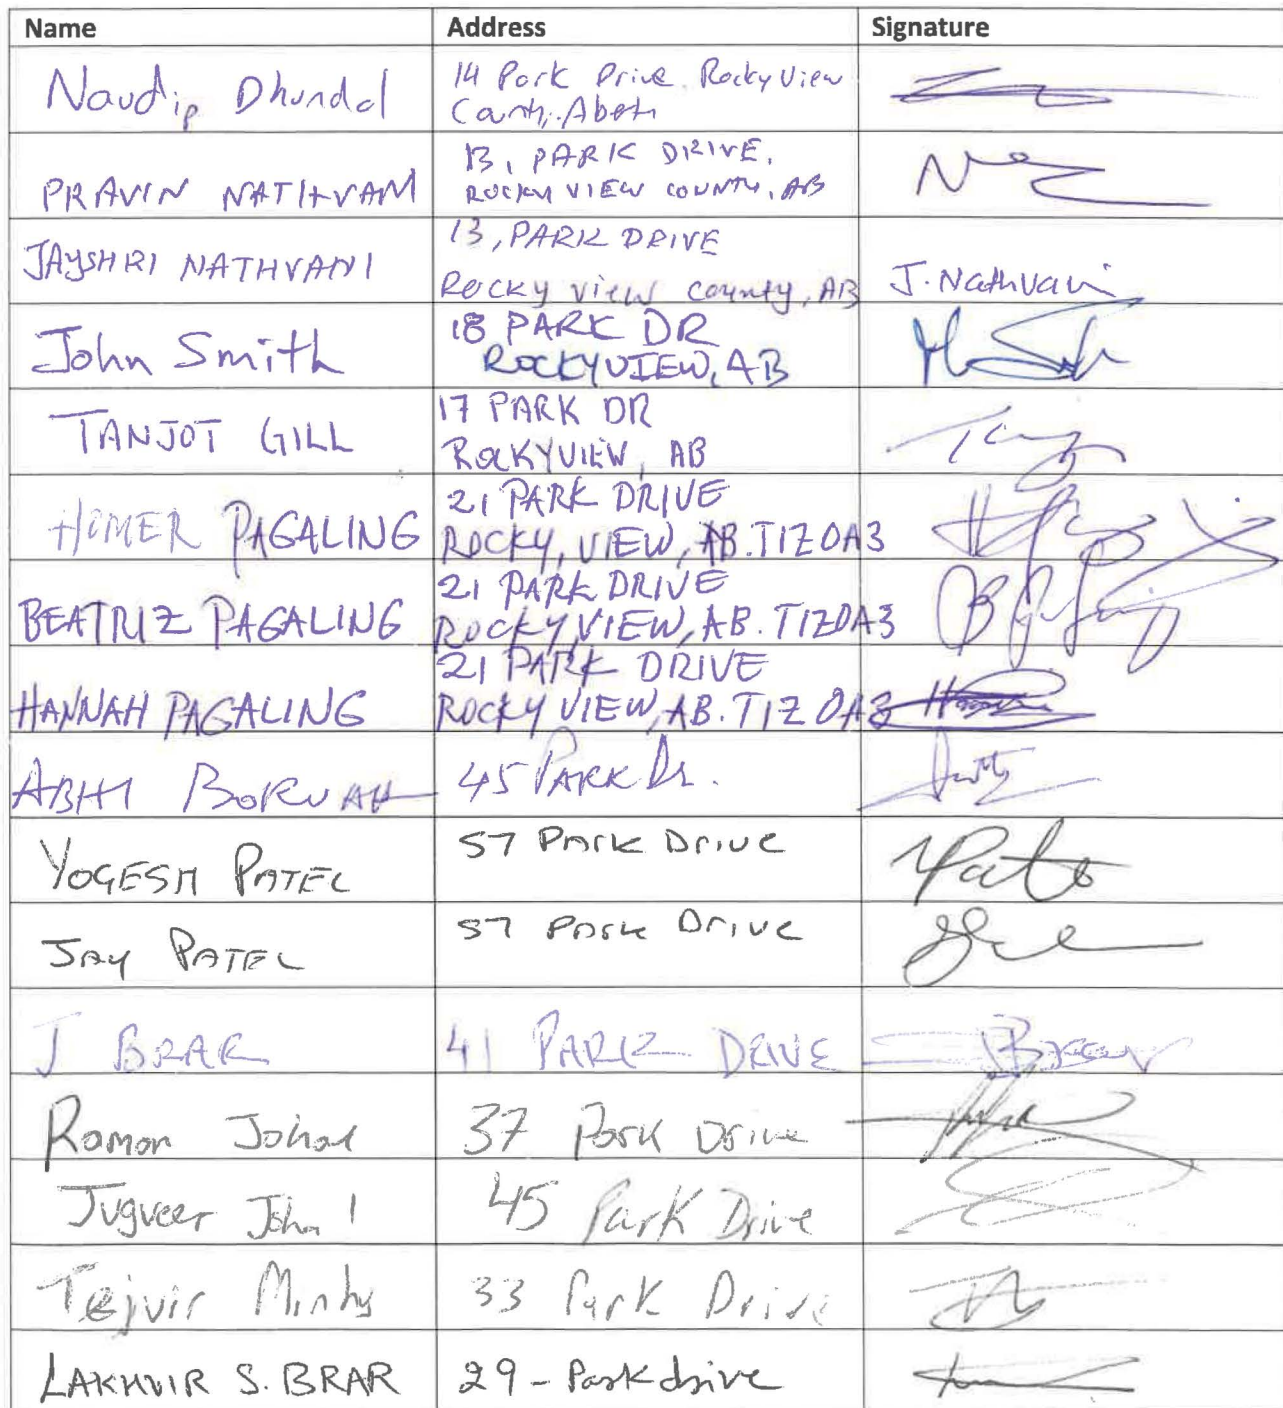 Name Address Signature
Navdip Dhundal
14 Park Drive. Rocky View
PRAVIN NATHVANI
13, PARK DRIVE,
ROCKY VIEW COUNTY, AB
JAYSHRI NATHVANI
13, PARK DRIVE
ROCKY VIEW county, AB
J. Nathvani
John Smith
18 PARK DR
ROCKYVIEW, AB
TANJOT GILL
17 PARK DR
ROCKYVIEW, AB
HOMER PAGALING
21 PARK DRIVE
ROCKY, VIEW, AB. T1Z0A3
BEATRIZ PAGALING
21 PARK DRIVE
ROCKY, VIEW, AB. T1Z0A3
HANNAH PAGALING
21 PARK DRIVE
ROCKY VIEW, AB. T1Z 0A3
ABHI BORUAH
45 PARK Dr.
YOGESH PATEL
57 Park Drive
JAY PATEL
57 Park Drive
J BRAR
41 PARK DRIVE
Raman Johal
37 Park Drive
Jugveer Johal
45 Park Drive
Tejvir
33 Park Drive
LAKHVIR S. BRAR
29 - Park drive